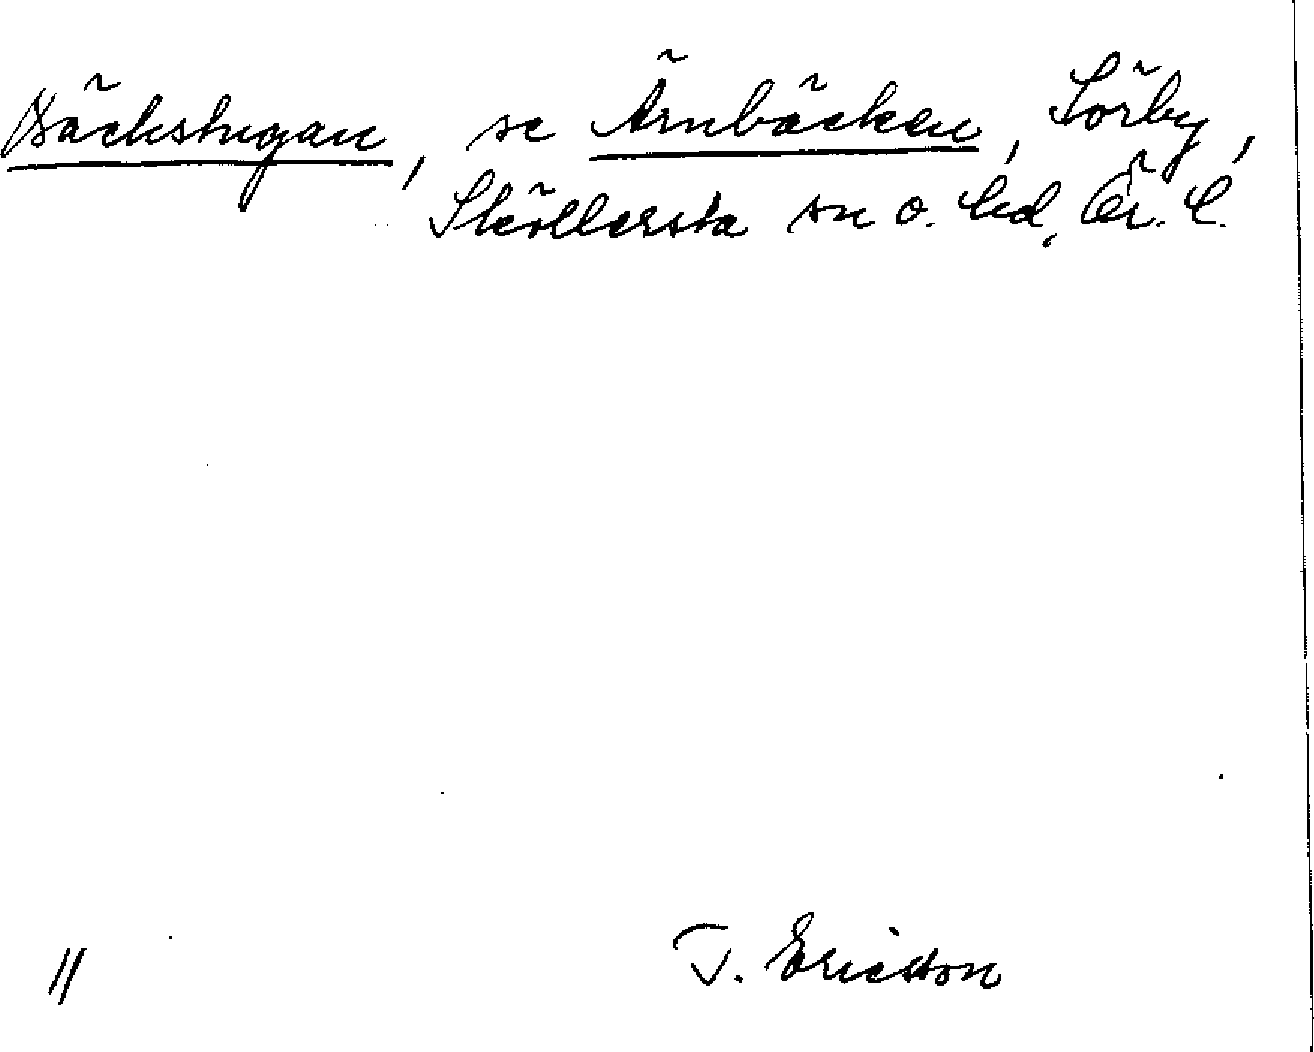 Bäckstugan, se Ärnbäcken, Sörby,
Sköllersta sn o. hd, Ör. l.
T. Ericsson